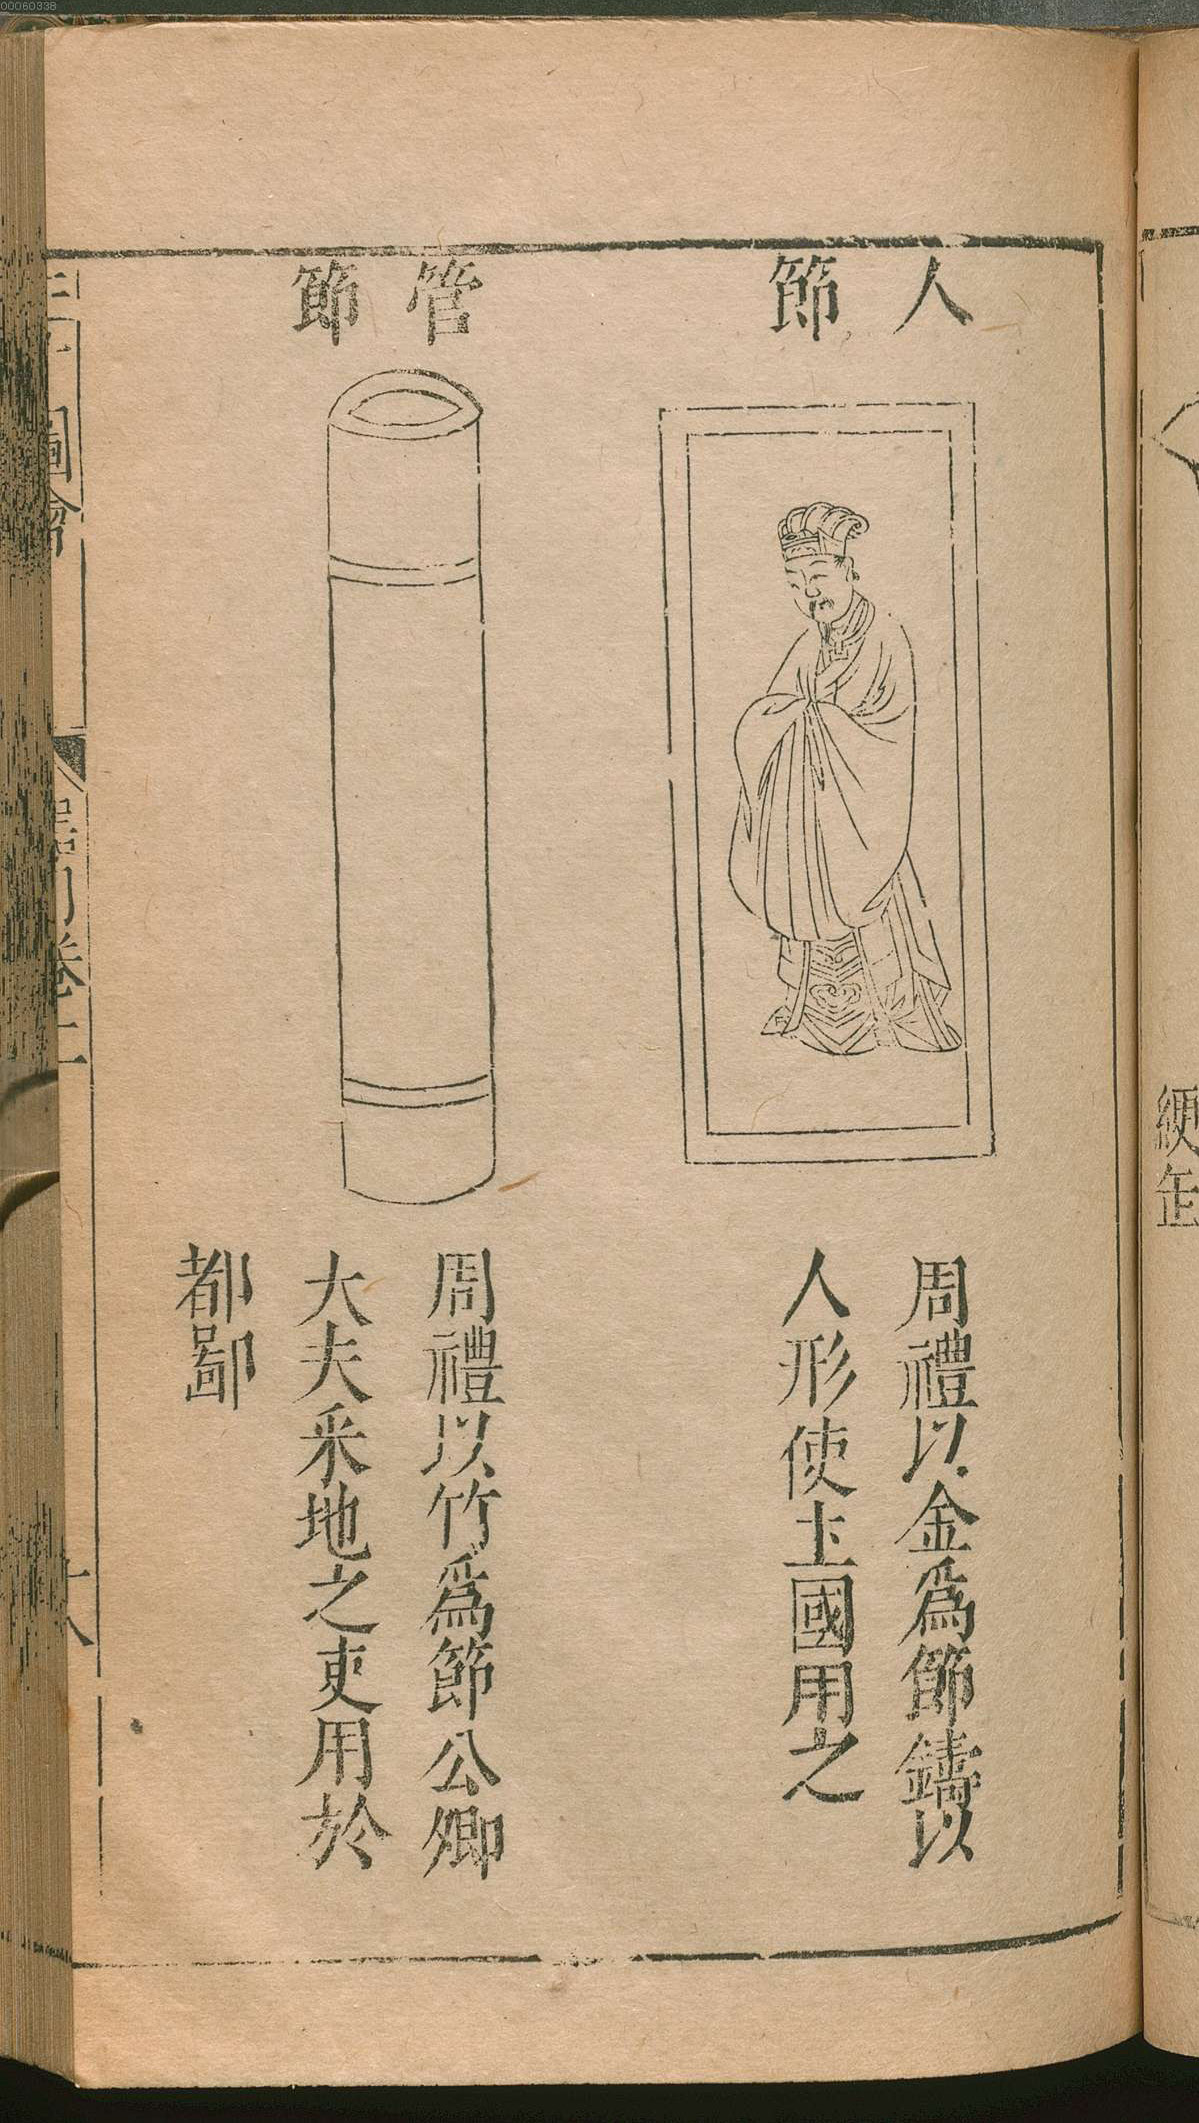 00060338
人節
周禮以金為節鑄以
人形使土國用之
管節
周禮以竹為節公卿
大夫采地之吏用於
都鄙
圖會
卷十一